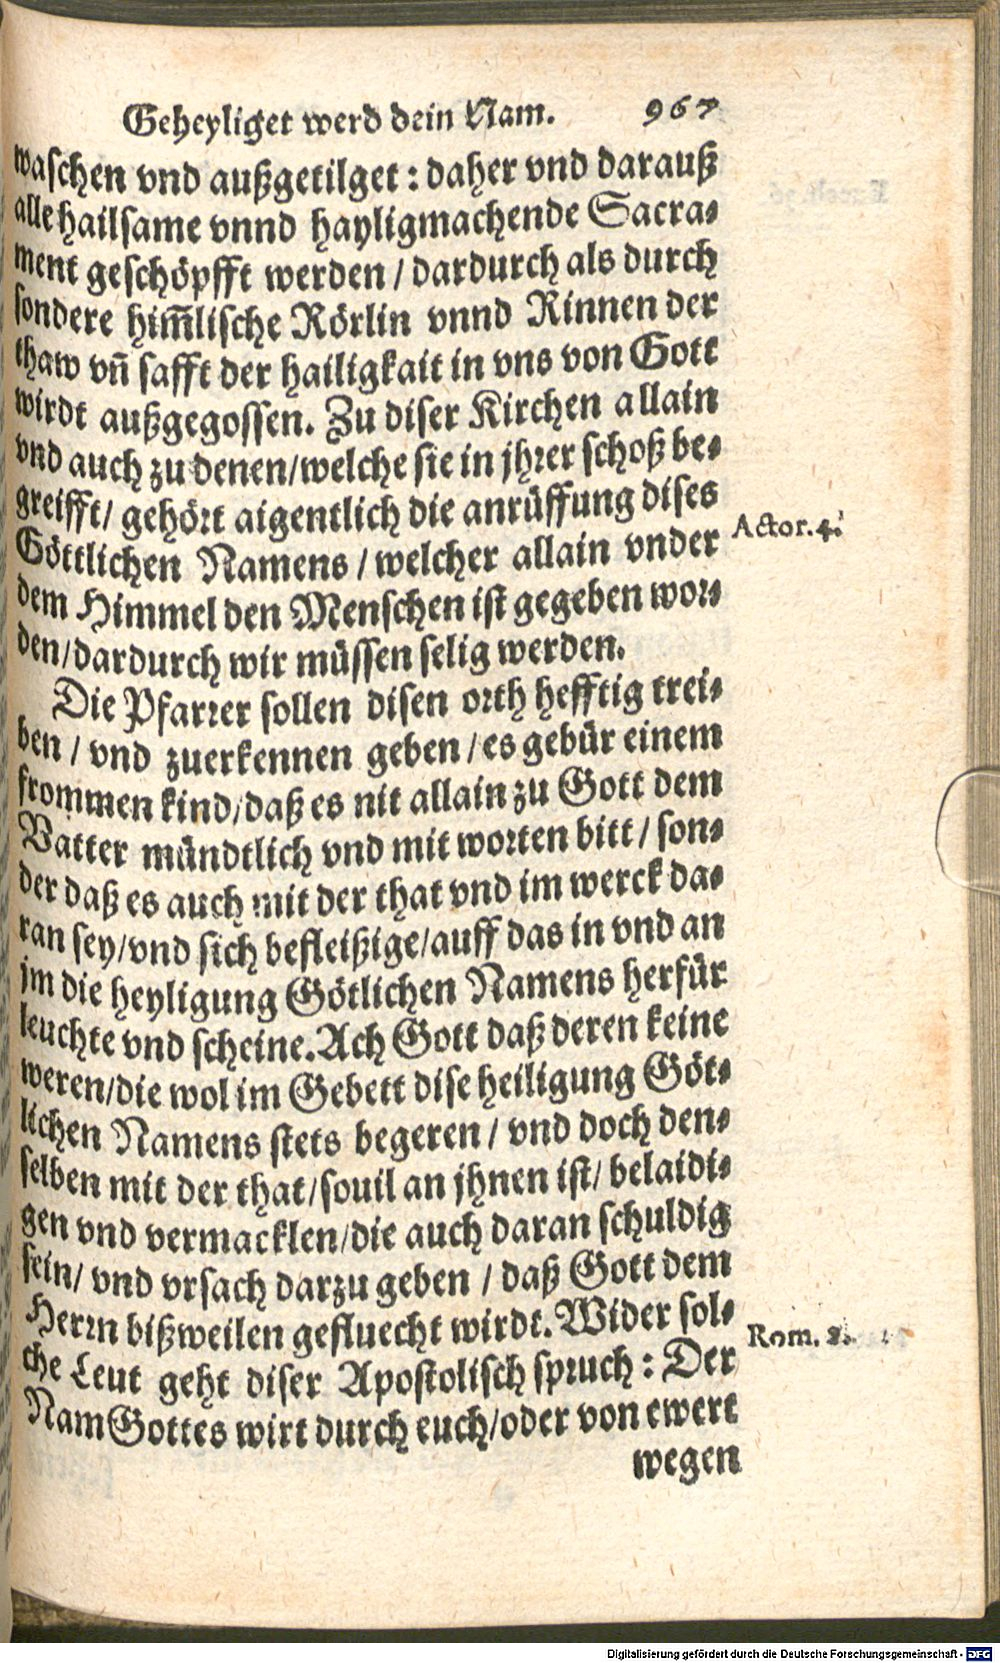 Geheyliget werd dein Nam. 967
waschen vnd außgetilget : daher vnd darauß
alle hailsame vnnd hayligmachende Sacra⸗
ment geschöpfft werden / dardurch als durch
sondere him̃lische Rörlin vnnd Rinnen der
thaw vñ safft der hailigkait in vns von Gott
wirdt außgegossen. Zu diser Kirchen allain
vnd auch zu denen/welche sie in jhrer schoß be⸗
greifft/ gehört aigentlich die anrüffung dises
Göttlichen Namens / welcher allain vnder
Actor. 4.
dem Himmel den Menschen ist gegeben wor⸗
den/dardurch wir müssen selig werden.
Die Pfarrer sollen disen orth hefftig trei⸗
ben / vnd zuerkennen geben / es gebür einem
frommen kind/daß es nit allain zu Gott dem
Vatter mündtlich vnd mit worten bitt / son⸗
der daß es auch mit der that vnd im werck da⸗
ran sey/vnd sich befleißige/auff das in vnd an
jm die heyligung Götlichen Namens herfür
leuchte vnd scheine. Ach Gott daß deren keine
weren/die wol im Gebett dise heiligung Göt⸗
lichen Namens stets begeren / vnd doch den⸗
selben mit der that/souil an jhnen ist/ belaidi⸗
gen vnd vermacklen/die auch daran schuldig
sein/ vnd vrsach darzu geben / daß Gott dem
Herrn bißweilen gefluecht wirdt. Wider sol⸗
Rom. 2.
che Leut geht diser Apostolisch spruch : Der
Nam Gottes wirt durch euch/oder von ewert
wegen
Digitalisierung gefördert durch die Deutsche Forschungsgemeinschaft - DFG